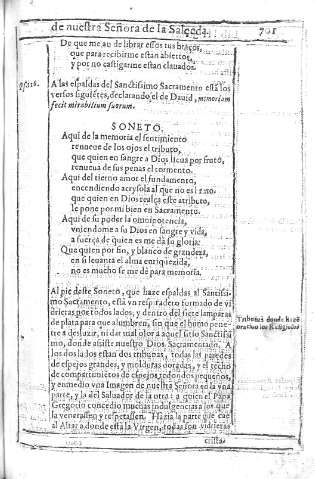 de nuestra Señora de la Salceda. 701
De que me an de librar essos tus braços,
que para recibirme estàn abiertos,
y por no castigarme estan clauados.
A las espaldas del Santissimo Sacramento està los
versos siguiêtes, declarando el de Dauid, memoriam
fecit mirabilium suorum.
SONETO.
Aqui de la memoria el sentimiento
renueue de los ojos el tributo,
que quien en sangre a Dios lleua por fruto,
renueua de sus penas el tormento.
Aqui del tierno amor el fundamento,
encendiendo acrysola al que no es
que quien en Dios realça este atributo,
le pone por mi bien en Sacramento.
Aqui de su poder la omnipotencia,
vniendome a su Dios en sangre y vida,
a fuerça de quien es me dà su gloria:
Que quien por fio, y blanco de grandeza,
en si leuanta el alma enriquezida,
no es mucho se me dè para memoria.
Al pie deste Soneto, que haze espaldas al Santissi-
mo Sacramento, està vn respiradero formado de vi-
drieras por todos lados, y dentro del siete lamparas
de plata para que alumbren, sin que el humo pene-
tre a desluzir, ni dar mal olor a aquel sitio Santissi-
mo, donde assiste nuestro Dios Sacramentado. A
los dos lados estan dos tribunas, todas las paredes
de espejos grandes, y molduras doradas, y el techo
de compartimientos de espejos redondos pequeños,
y enmedio vna Imagen de nuestra Señora en la vna
parte, y la del Saluador de la otra: a quien el Papa
Gregorio concedio muchas indulgencias a los que
la venerassen y respetassen. Hazia la parte que cae
al Altar a donde està la Virgen, todas son vidrieras
crista-
Tribunas donde
oran los Religiosos